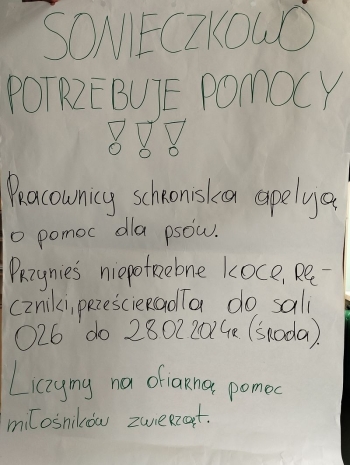 SONIECZKOWO
POTRZEBUJE POMOCY
!!!
PRACOWNICY SCHRONISKA APELUJĄ
O POMOC DLA PSÓW.
PRZYNIEŚ NIEPOTRZEBNE KOCE, RĘ-
CZNIKI, PRZEŚCIERADŁA DO SALI
026 DO 28.02.2024R. (ŚRODA).
LICZYMY NA OFIARNĄ POMOC
MIŁOŚNIKÓW ZWIERZĄT.